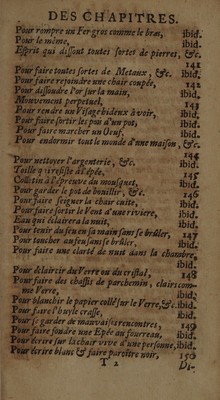 DES CHAPITRES.
Pour rompre un Fer gros comme le bras, ibid.
Pour le même, ibid.
Esprit qui dissout toutes sortes de pierres, &c.
142
Pour faire toutes sortes de Metaux, &c. ibid.
Pour faire rejoindre une chair coupée, 142
Pour dissoudre l'or sur la main, ibid.
Mouvement perpetuel, 143
Pour rendre un Visage hideux à voir, ibid.
Pour faire sortir les pois d'un pot, ibid.
Pour faire marcher un Oeuf, ibid.
Pour endormir tout le monde d'une maison, &c.
144
Pour nettoyer l'argenterie, &c. ibid.
Toille qui resiste à l'épée, ibid.
Colletin à l'épreuve du mousquet, 145
Pour garder le pot de bouillir, &c. ibid.
Pour faire seigner la chair cuite, 146
Pour faire sortir le Vent d'une riviere, ibid.
Eau qui éclairera de nuit, ibid.
Pour tenir du feu en sa main sans se brûler, 147
Pour toucher au feu sans se brûler, ibid.
Pour faire une clarté de nuit dans la chambre,
ibid.
Pour éclaircir du Verre ou du cristal, 148
Pour faire des chassis de parchemin, clairs comme
me Verre, ibid.
Pour blanchir le papier collé sur le Verre, &c. ibid.
Pour faire l'huyle crasse, ibid.
Pour se garder de mauvaises rencontres, 149
Pour faire fondre une Epée au fourreau, ibid.
Pour écrire sur la chair vive d'une personne, ibid.
Pour écrire blanc & faire paroître noir, 150
T 2 Di-